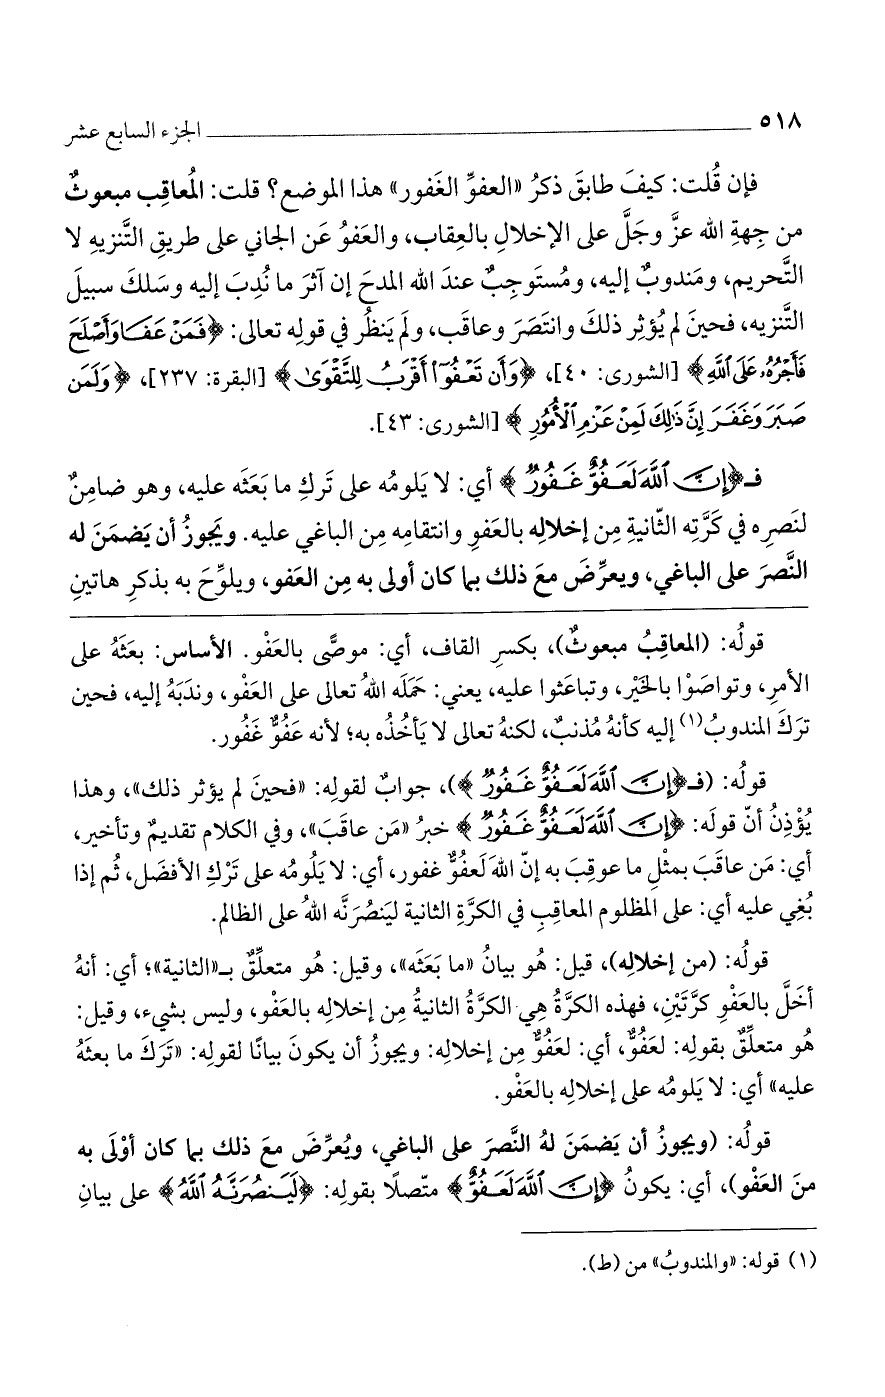 ٥١٨ ــــــــــــــــــــ الجزء السابع عشر
فإن قُلت: كيفَ طابقَ ذكرُ «العفوِّ الغَفور» هذا الموضع؟ قلت: المُعاقِب مبعوثٌ
من جِهةِ الله عزَّ وجَلَّ على الإخلالِ بالعِقاب، والعَفوُ عَن الجاني على طريقِ التَّنزيهِ لا
التَّحريم، ومَندوبٌ إليه، ومُستَوجِبٌ عندَ الله المدحَ إن آثرَ ما نُدِبَ إليه وسَلكَ سبيلَ
التَّنزيه، فحينَ لم يُؤثِر ذلكَ وانتَصَرَ وعاقَب، ولَم يَنظُر في قولِه تعالى: ﴿فَمَنْ عَفَا وَأَصْلَحَ
فَأَجْرُهُۥ عَلَى ٱللَّهِ﴾ [الشورى: ٤٠]، ﴿وَأَن تَعْفُوٓا۟ أَقْرَبُ لِلتَّقْوَىٰ﴾ [البقرة: ٢٣٧]، ﴿وَلَمَن
صَبَرَ وَغَفَرَ إِنَّ ذَٰلِكَ لَمِنْ عَزْمِ ٱلْأُمُورِ﴾ [الشورى: ٤٣].
فـ﴿إِنَّ ٱللَّهَ لَعَفُوٌّ غَفُورٌ﴾ أي: لا يَلومُه على تَركِ ما بَعَثَه عليه، وهو ضامِنٌ
لنَصرِه في كَرَّتِه الثّانيةِ مِن إخلالِه بالعَفوِ وانتقامِه مِن الباغي عليه. ويَجوزُ أن يَضمَنَ له
النَّصرَ على الباغي، ويعرِّضَ معَ ذلك بما كان أولى به مِن العَفو، ويلوِّحَ به بذكرِ هاتينِ
قولُه: (المعاقِبُ مبعوثٌ)، بكسرِ القاف، أي: موصًّى بالعَفْو. الأساس: بعَثَهُ على
الأمرِ، وتواصَوْا بالخَيْر، وتباعَثوا عليه، يعني: حَمَلَه اللهُ تعالى على العَفْو، وندَبَهُ إليه، فحين
ترَكَ المندوبُ(١) إليه كأنهُ مُذنبٌ، لكنهُ تعالى لا يَأخُذُه به؛ لأنه عَفُوٌّ غَفُور.
قولُه: (فـ﴿إِنَّ ٱللَّهَ لَعَفُوٌّ غَفُورٌ﴾)، جوابٌ لقولِه: «فحينَ لم يؤثر ذلك»، وهذا
يُؤْذِنُ أنّ قولَه: ﴿إِنَّ ٱللَّهَ لَعَفُوٌّ غَفُورٌ﴾ خبرُ «مَن عاقَبَ»، وفي الكلام تقديمٌ وتأخير،
أي: مَن عاقَبَ بمثْلِ ما عوقِبَ به إنّ اللهَ لَعفُوٌّ غفور، أي: لا يَلُومُه على تَرْكِ الأفضَل، ثُم إذا
بُغِي عليه أي: على المظلوم المعاقِبِ في الكرَّةِ الثانية ليَنصُرَنَّه اللهُ على الظالم.
قولُه: (من إخلاله)، قيل: هُو بيانُ «ما بَعَثَه»، وقيل: هُو متعلِّقٌ بـ«الثانية»؛ أي: أنهُ
أخَلَّ بالعَفْوِ كرَّتَيْنِ، فهذه الكرَّةُ هِي الكرَّةُ الثانيةُ مِن إخلالِه بالعَفْو، وليس بشيء، وقيل:
هُو متعلِّقٌ بقولِه: لعَفُوٌّ، أي: لعَفُوٌّ مِن إخلالِه: ويجوزُ أن يكونَ بيانًا لقولِه: «تَرَكَ ما بعثَهُ
عليه» أي: لا يَلومُه على إخلالِه بالعَفْو.
قولُه: (ويجوزُ أن يَضمَنَ لهُ النَّصرَ على الباغي، ويُعرِّضَ معَ ذلك بما كان أوْلَى به
منَ العَفْو)، أي: يكونُ ﴿إِنَّ ٱللَّهَ لَعَفُوٌّ﴾ متّصلًا بقولِه: ﴿لَيَنصُرَنَّهُ ٱللَّهُ﴾ على بيانِ
(١) قوله: «والمندوبُ» من (ط).